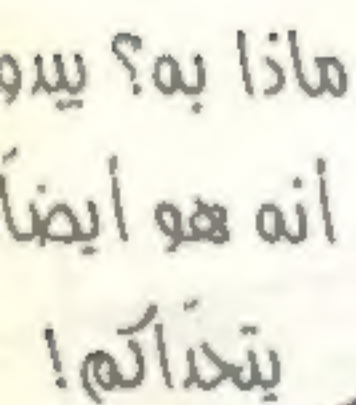 ماذا به؟ يبدو
أنه هو أيضاً
يتحدّاكم!